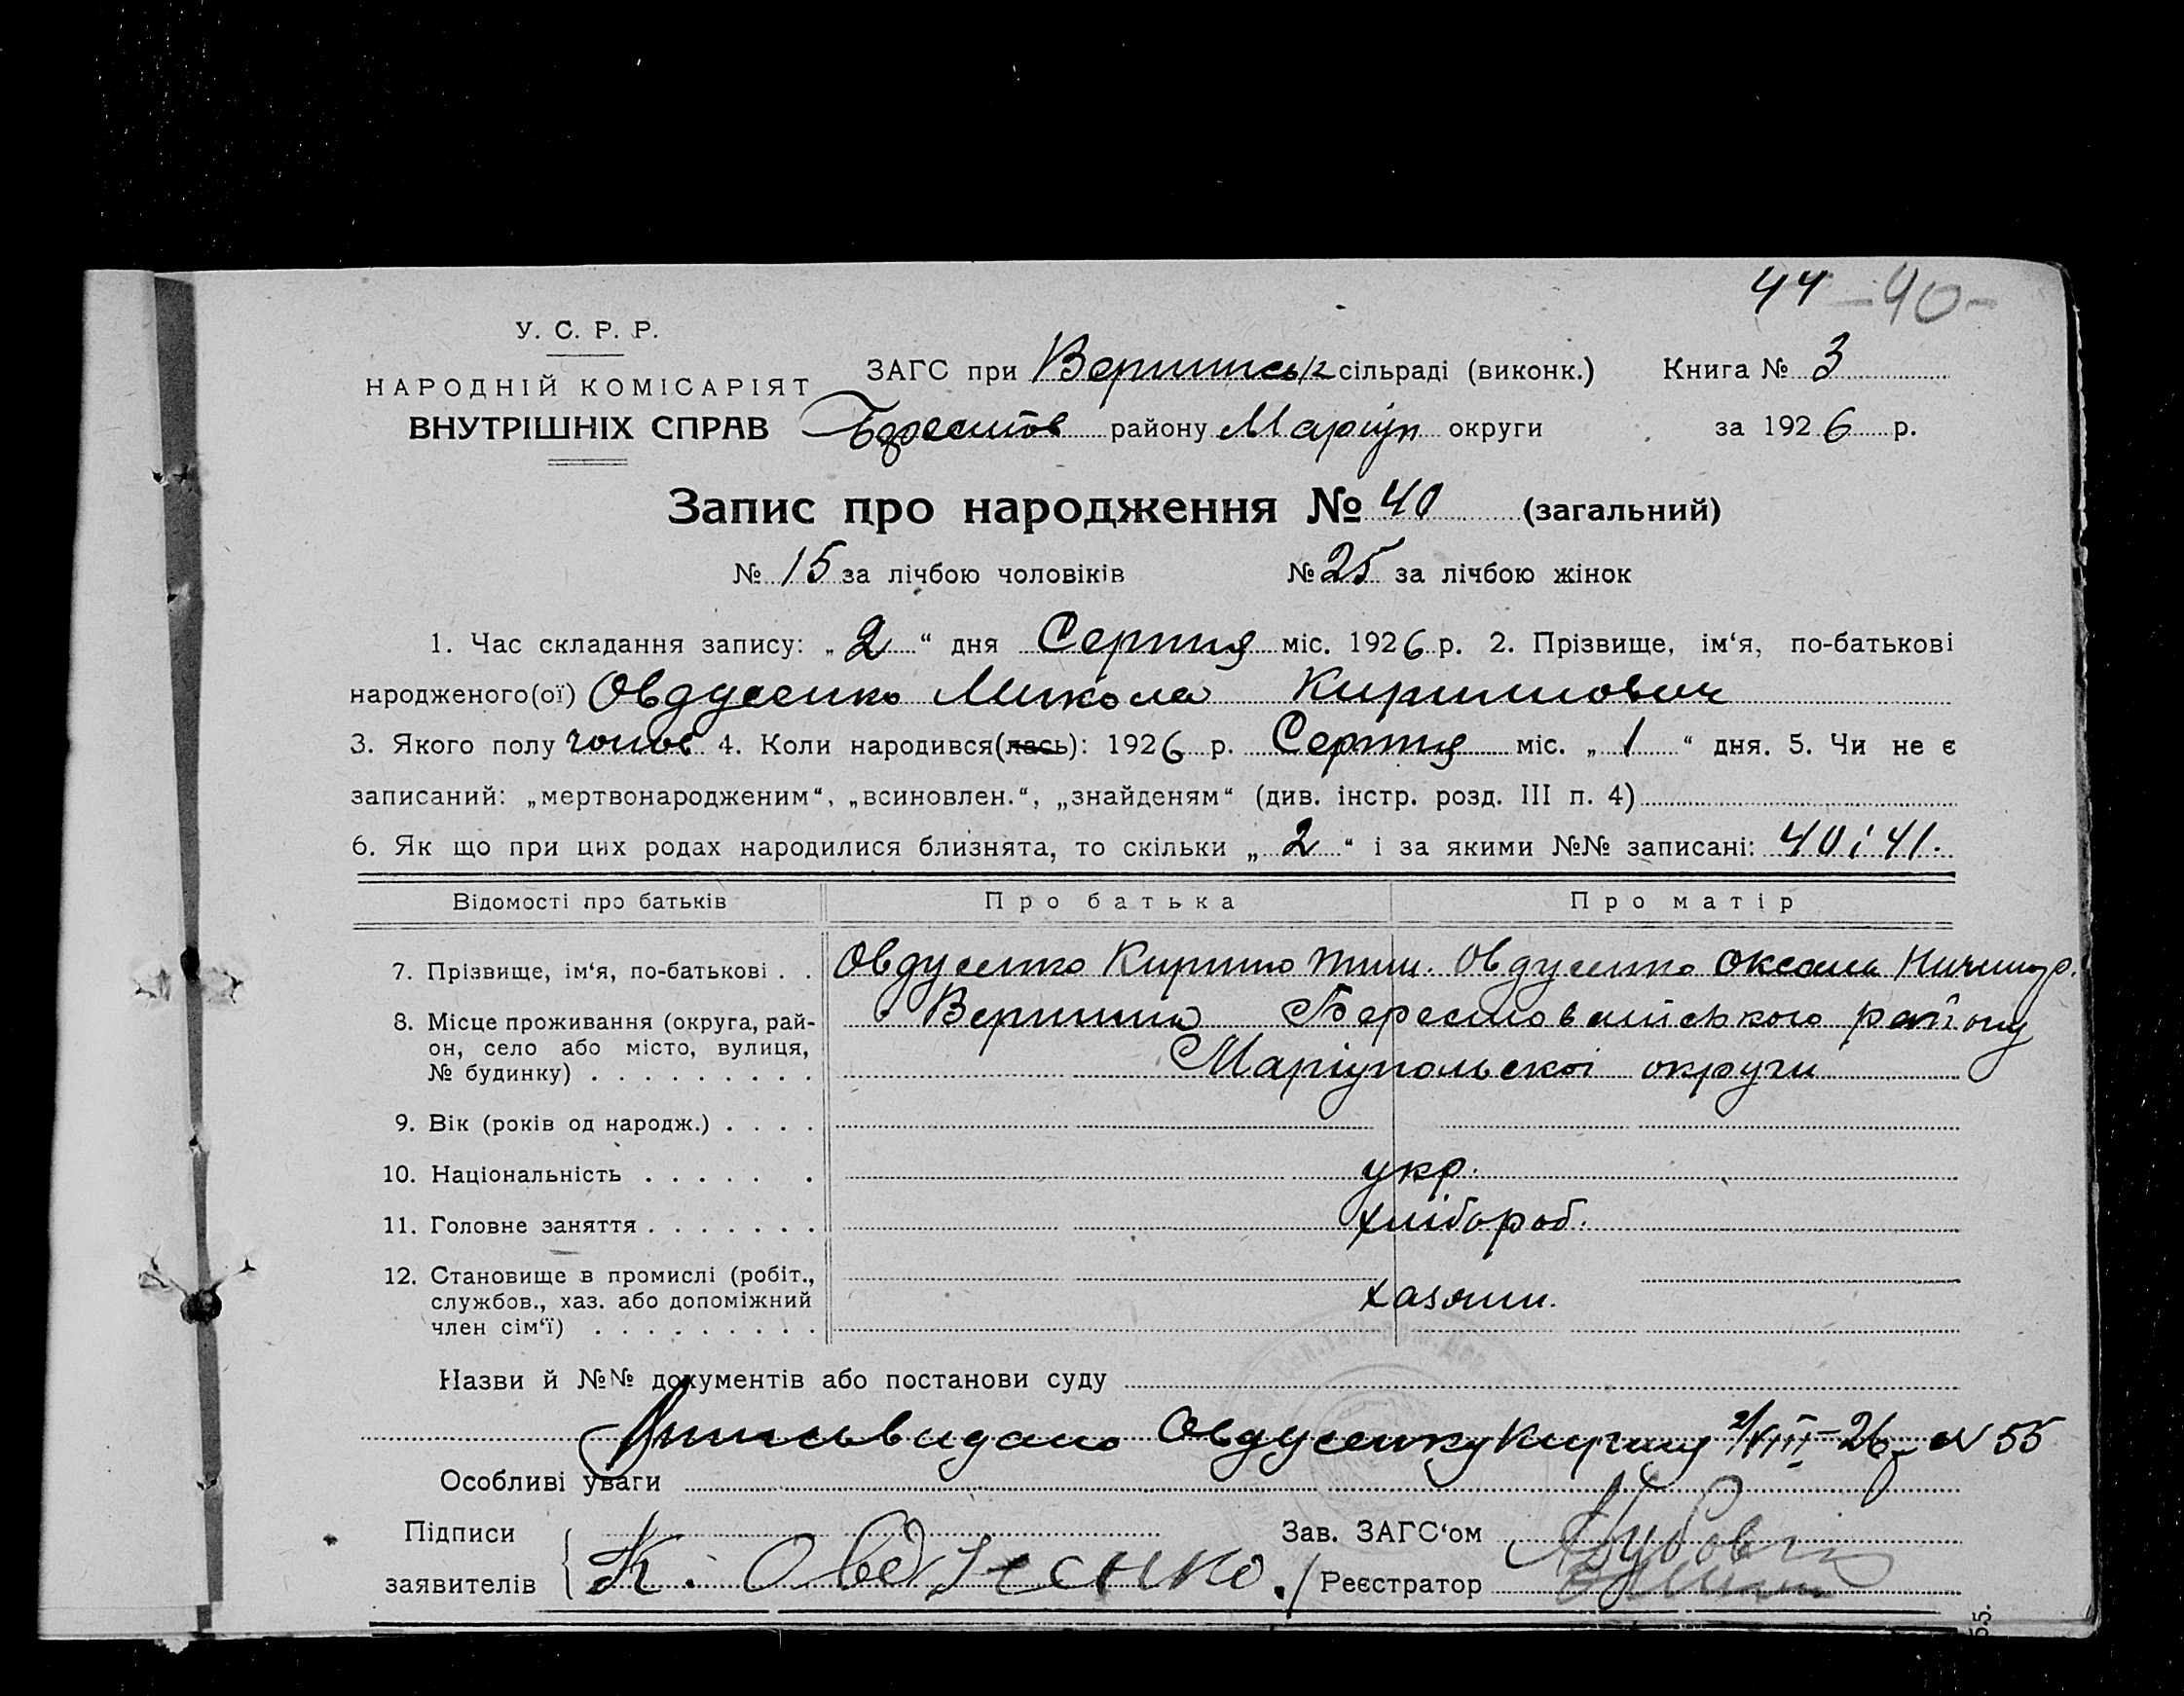 44 -40-
У. С. Р. Р.
НАРОДНІЙ КОМІСАРІЯТ
ВНУТРІШНІХ СПРАВ
ЗАГС при Вершинськ сільраді (виконк.) Книга № 3
Берестов району Маріуп округи за 1926 р.
Запис про народження № 40 (загальний)
№ 15 за лічбою чоловіків № 25 за лічбою жінок
1. Час складання запису: „2“ дня Серпня міс. 1926 р. 2. Прізвище, ім‘я, по-батькові
народженого(ої) Овдусенко Микола Кирилович
3. Якого полу чолов 4. Коли народився(лась): 1926 р. Серпня міс. „1“ дня. 5. Чи не є
записаний: „мертвонародженим“, „всиновлен.“, „знайденям“ (див. інстр. розд. III п. 4)
6. Як що при цих родах народилися близнята, то скільки „2“ і за якими №№ записані: 40 і 41.
Відомості про батьків Про батька Про матір
7. Прізвище, ім‘я, по-батькові . . Овдусенко Кирило Тим. Овдусенко Оксана
8. Місце проживання (округа, рай- Вершина Берестовського району
он, село або місто, вулиця, Маріупольскої округи
№ будинку)
9. Вік (років од народж.)
10. Національність укр.
11. Головне заняття хлібороб.
12. Становище в промислі (робіт.,
службов., хаз. або допоміжний хазяин.
член сім‘ї)
Назви й №№ документів або постанови суду
видано Овдусенку Кирилу 2/VIII-26 № 55
Особливі уваги
Підписи Зав. ЗАГС‘ом
заявителів К. Овдусенко. Реєстратор